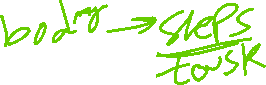 body → steps
task